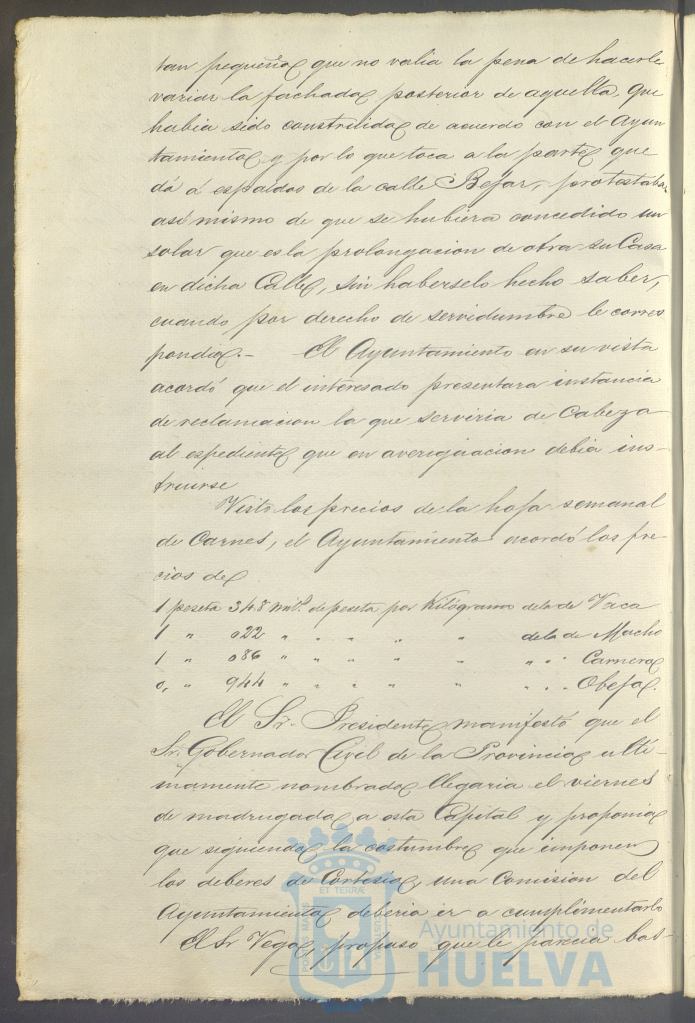 tan pequeña que no valia la pena de hacerle
variar la fachada posterior de aquella que
habia sido construida de acuerdo con el Ayun
tamiento y por lo que toca a la parte que
dá á espaldas de la calle Bejar, protestaba
asi mismo de que se hubiera concedido un
solar que es la prolongacion de otra su Casa
en dicha Calle, sin haberselo hecho saber,
cuando por derecho de servidumbre le corres
pondia.- El Ayuntamiento en su vista
acordó que el interesado presentara instancia
de reclamacion la que serviria de Cabeza
al espediente que en averiguacion debia ins-
truirse
Visto los precios de la hoja semanal
de Carnes, el Ayuntamiento acordó los pre
cios de
1 peseta 348 mils. de peseta por Kilógramo de la de Vaca
1 " 022 " " " " " de la de Macho
1 " 086 " " " " " " " Carnero
0, " 944 " " " " " " " Obeja.
El Sr. Presidente manifestó que el
Sr. Gobernador Civil de la Provincia ulti-
mamente nombrado llegaria el viernes
de madrugada a esta Capital y proponia
que siguiendo la costumbre que imponen
los deberes de Cortesia, una Comision del
Ayuntamiento deberia ir a cumplimentarlo
El Sr Vega propuso que le parecia bas-
Ayuntamiento de
HUELVA